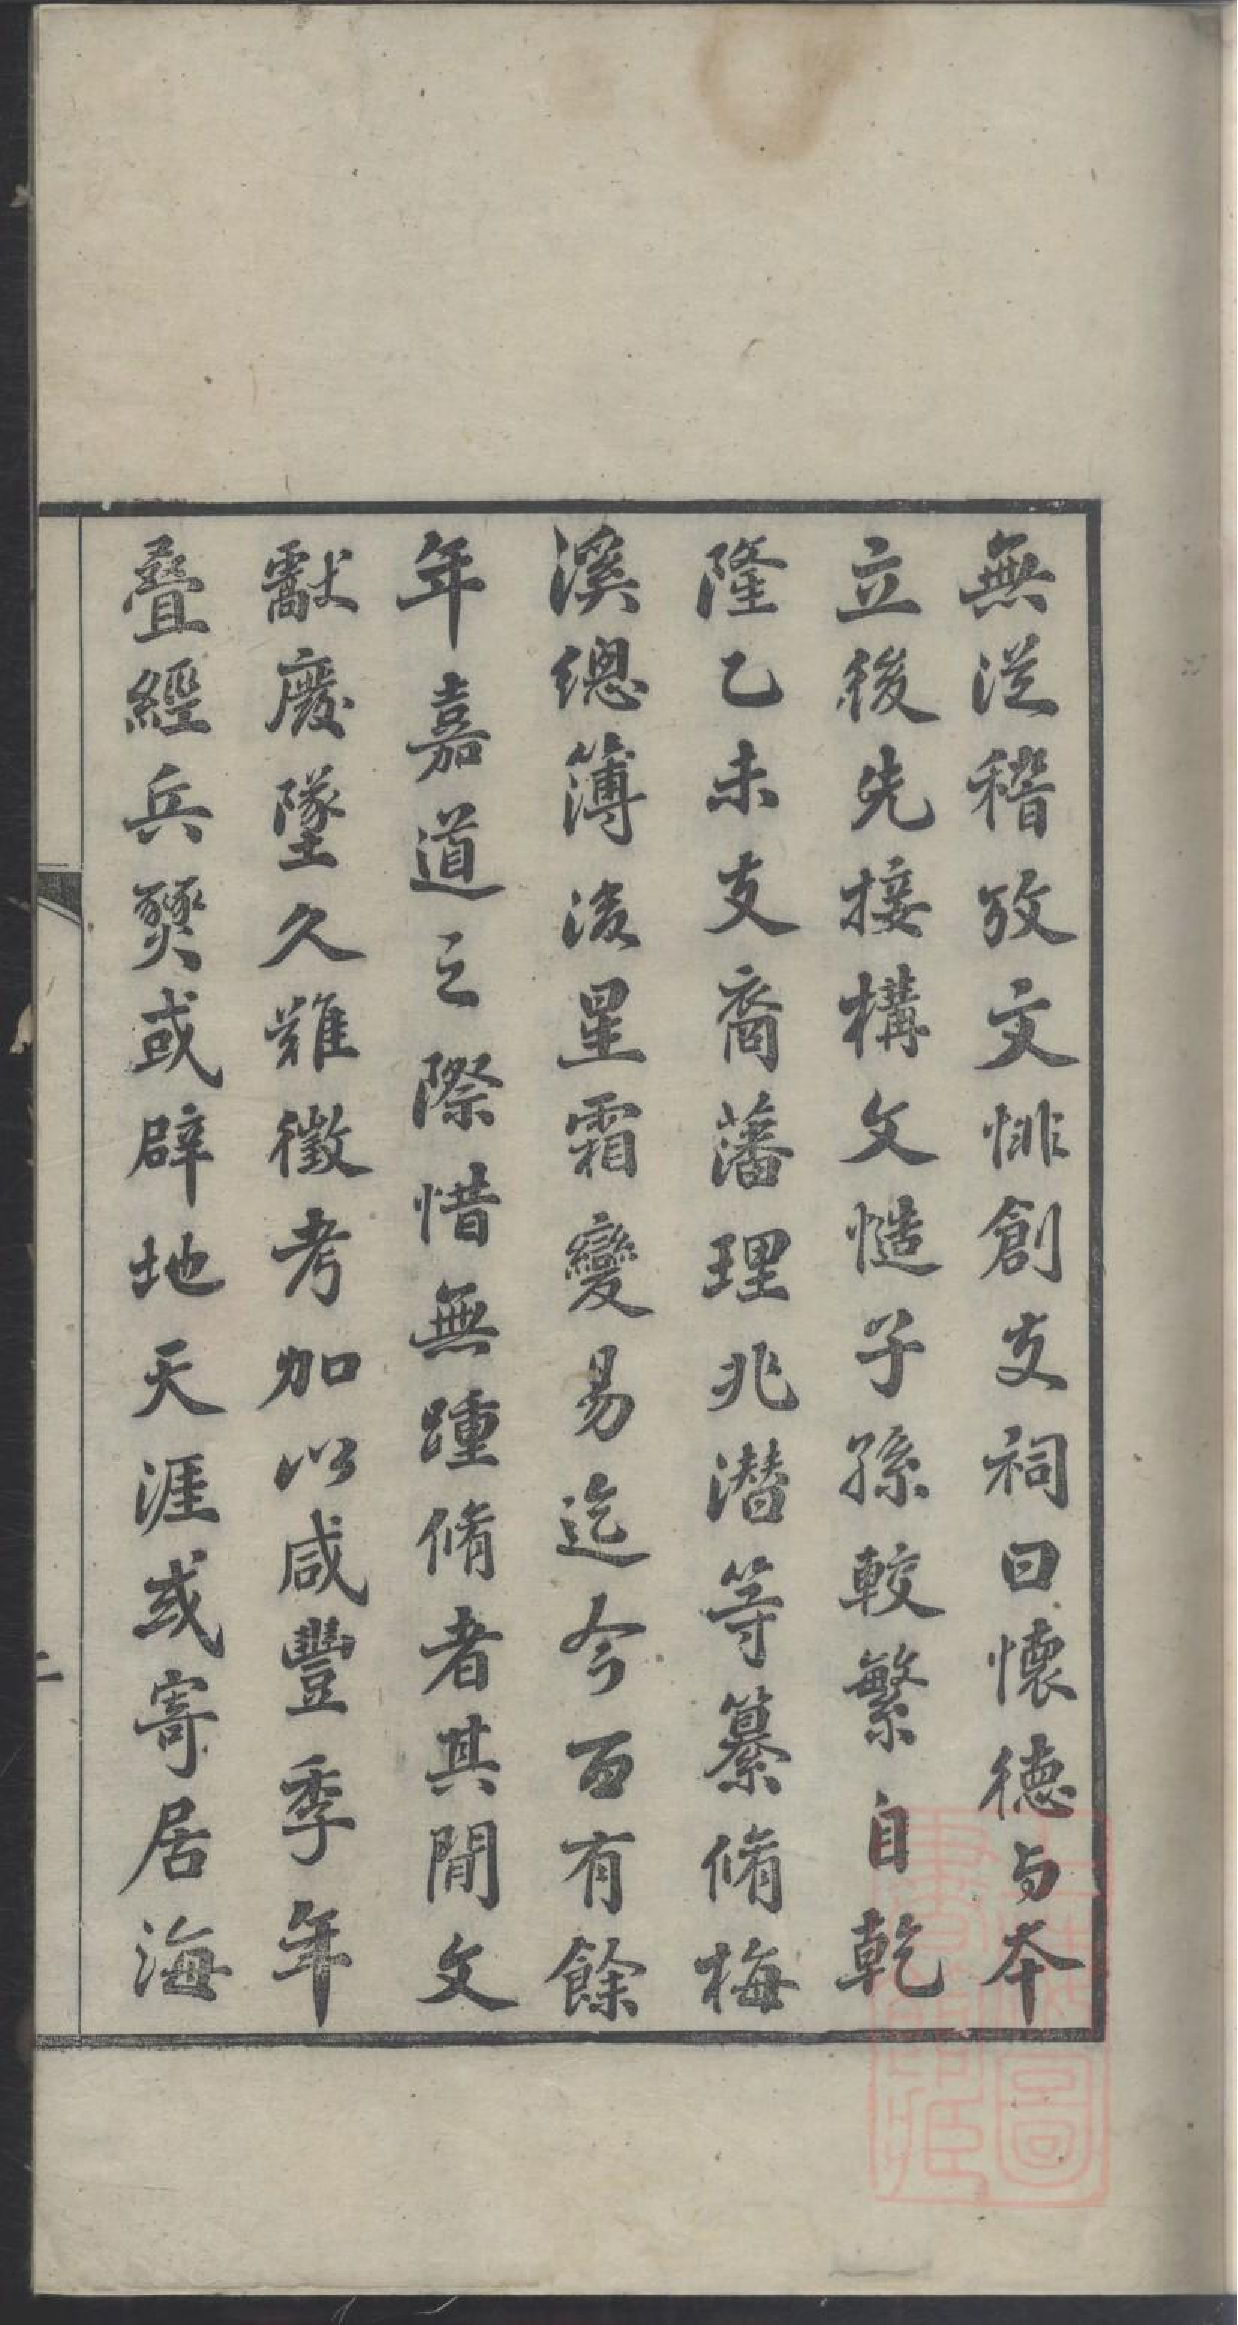 無從稽攷文悱創支祠曰懷德与本
立後先接構文慥子孫較繁自乾
隆乙未支裔藩理兆潛等纂脩梅
溪總簿後星霜變易迄今百有餘
年嘉道之際惜無踵脩者其閒文
獻廢墜久難徵考加以咸豐季年
疊經兵燹或辟地天涯或寄居海
二